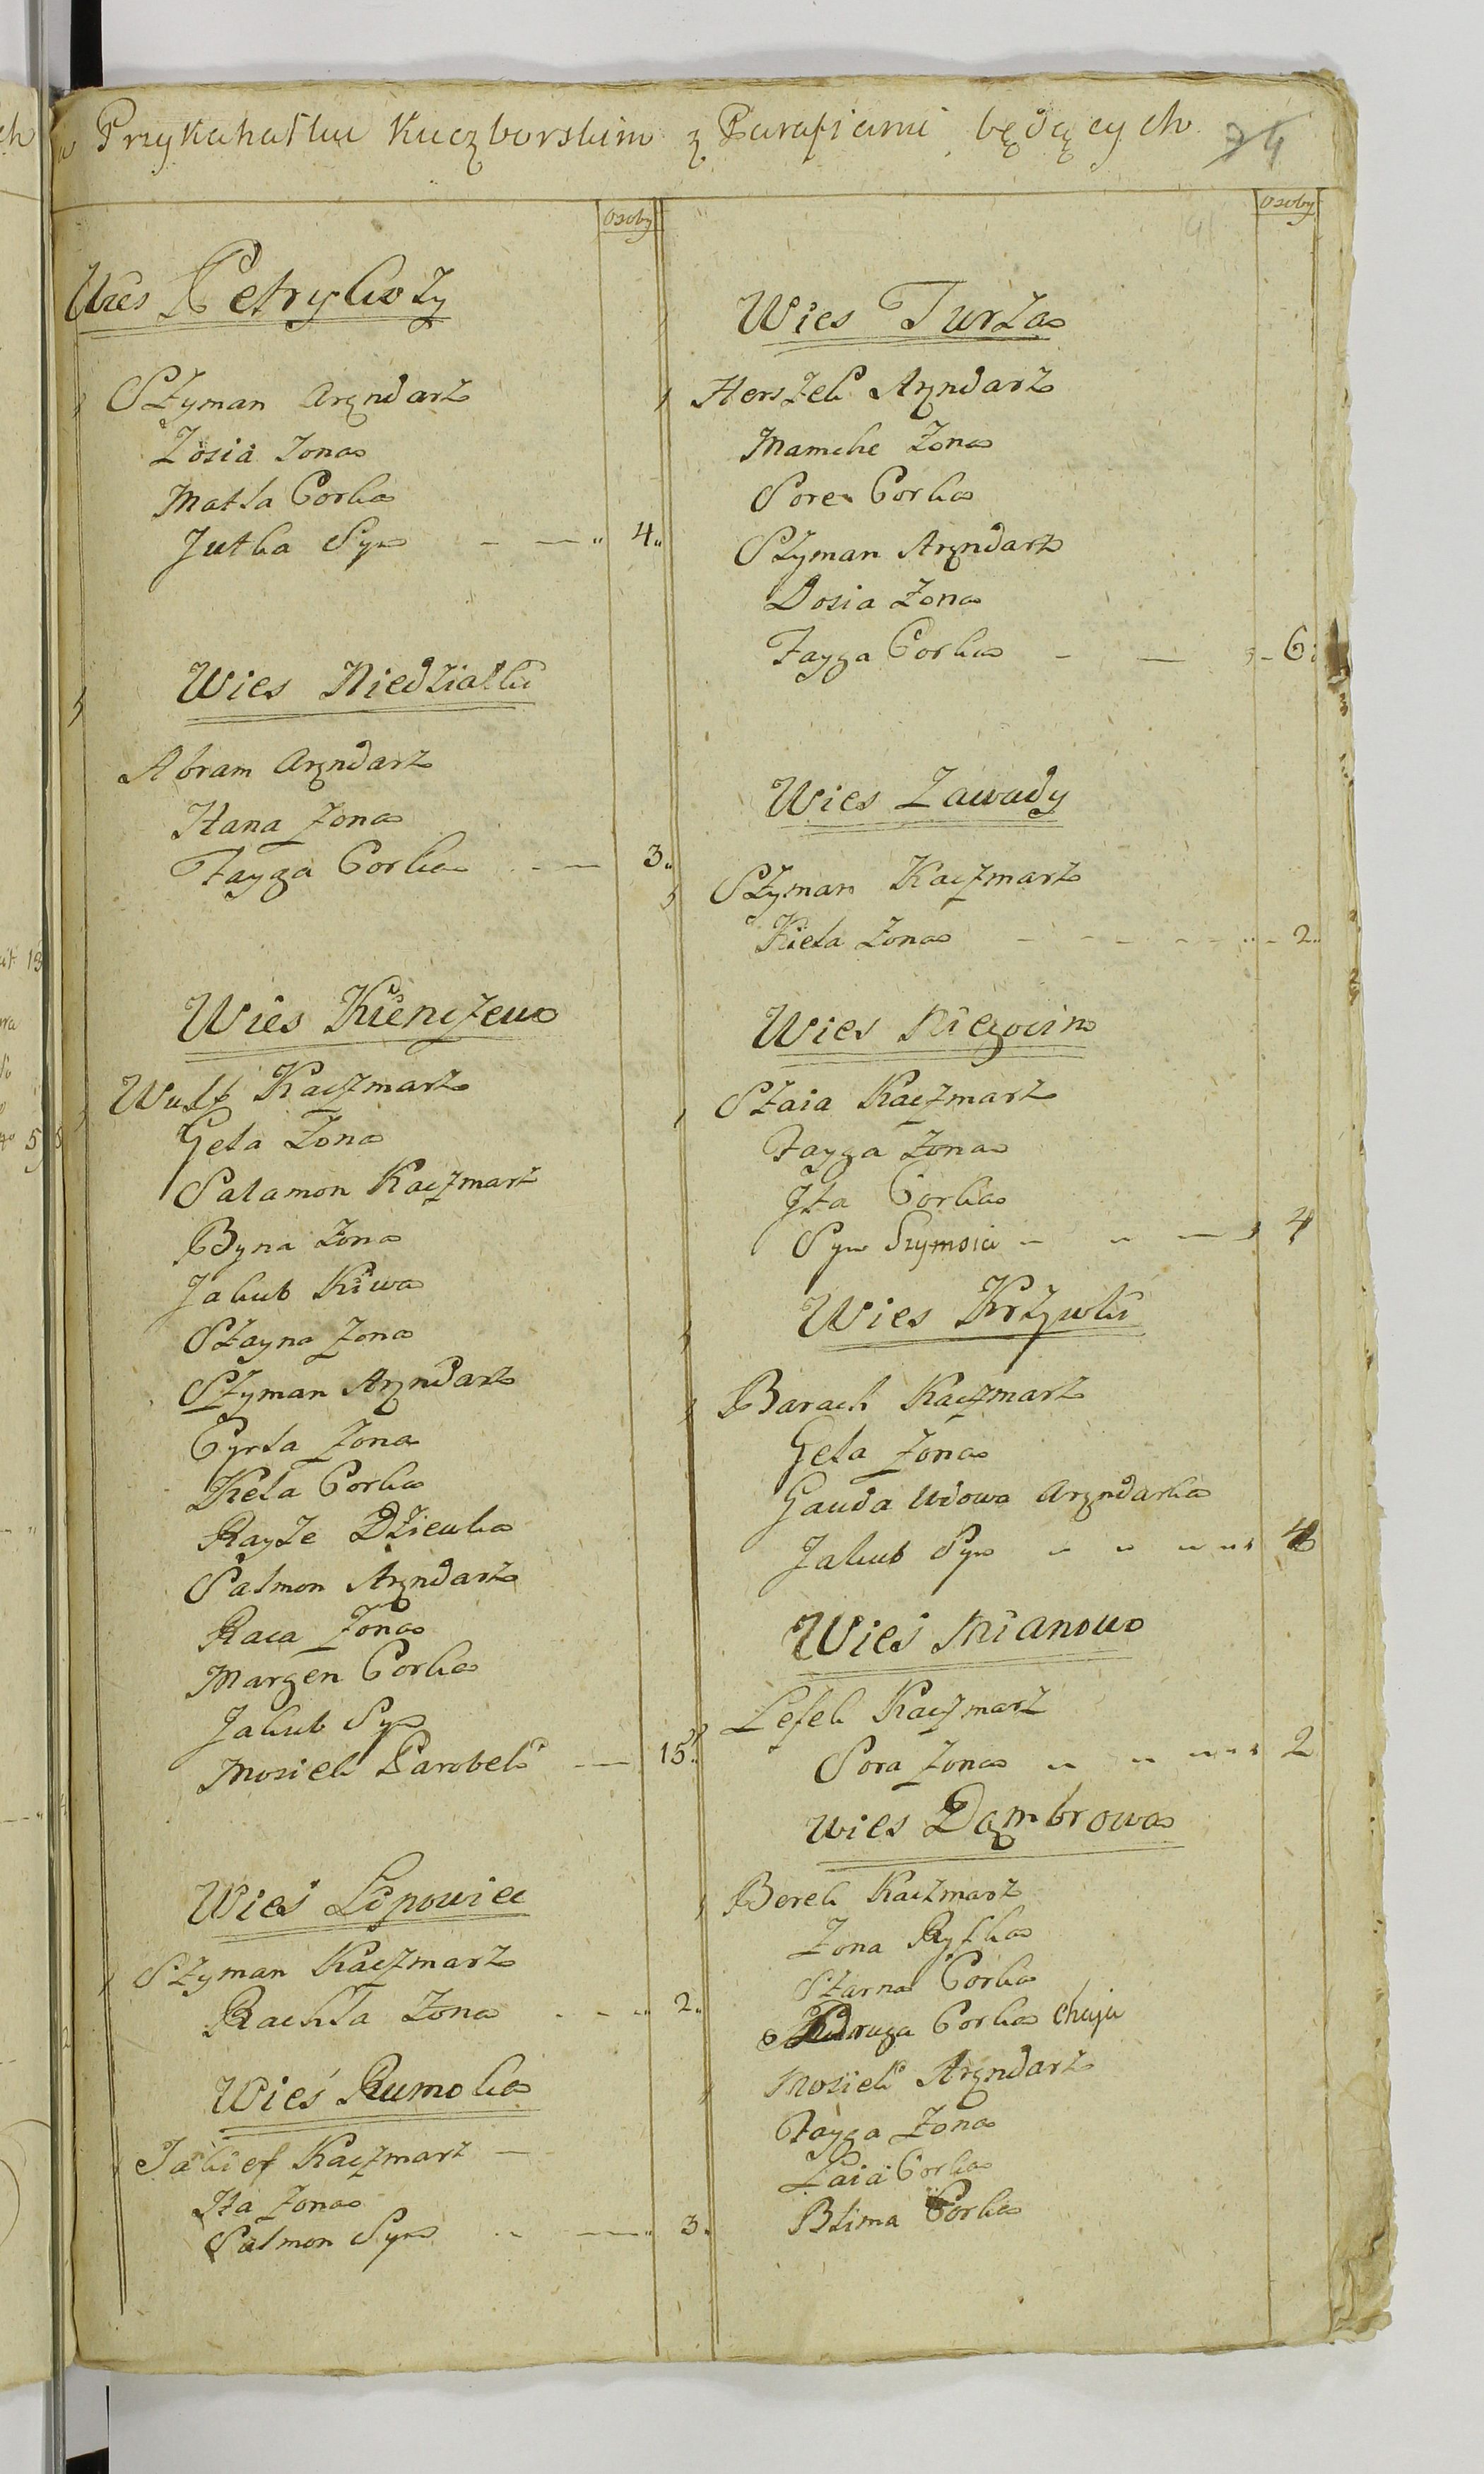 w Przykahałku Kuczborskim z Parafiami będących 74
Osoby
Wies Petrykozy
Szyman Aręndarz
Zosia Zona
Matla Corka
Jutka Syn 4
Wies Niedziałki
Abram Aręndarz
Hana Zona
Fayga Corka 3
Wies Kienczewo
Wulf Kaczmarz
Gela Zona
Salamon Kaczmarz
Byna Zona
Jakub Kiwa
Szayna Zona
Szyman Aręndarz
Cyrla Zona
Kela Corka
Rayze Dziewka
Salmon Aręndarz
Raca Zona
Margen Corka
Jakub Syn
Mosiek Parobek 15
Wieś Lipowiec
Szyman Kaczmarz
Rachla Zona 2
Wieś Rumoka
Jakief Kaczmarz
Ita Zona
Salmon Syn 3
Osoby
Wies Turza
Herszek Aręndarz
Mamche Zona
Sore Corka
Szyman Aręndarz
Dosia Zona
Fayga Corka 6
Wies Zawady
Szyman Kaczmarz
Kiela Zona 2
Wies Niegocin
Szaia Kaczmarz
Fayga Zona
Ita Corka
Syn Szymsia 4
Wies Krzywki
Barach Kaczmarz
Gela Zona
Gauda Wdowa Aręndarka
Jakub Syn 4
Wieś Mianowo
Lefek Kaczmarz
Sora Zona 2
Wies Dąmbrowa
Berek Kaczmarz
Zona Ryfka
Szarna Corka
Druga Corka Chaja
Mosiek Aręndarz
Fayga Zona
Laia Corka
Blima Corka